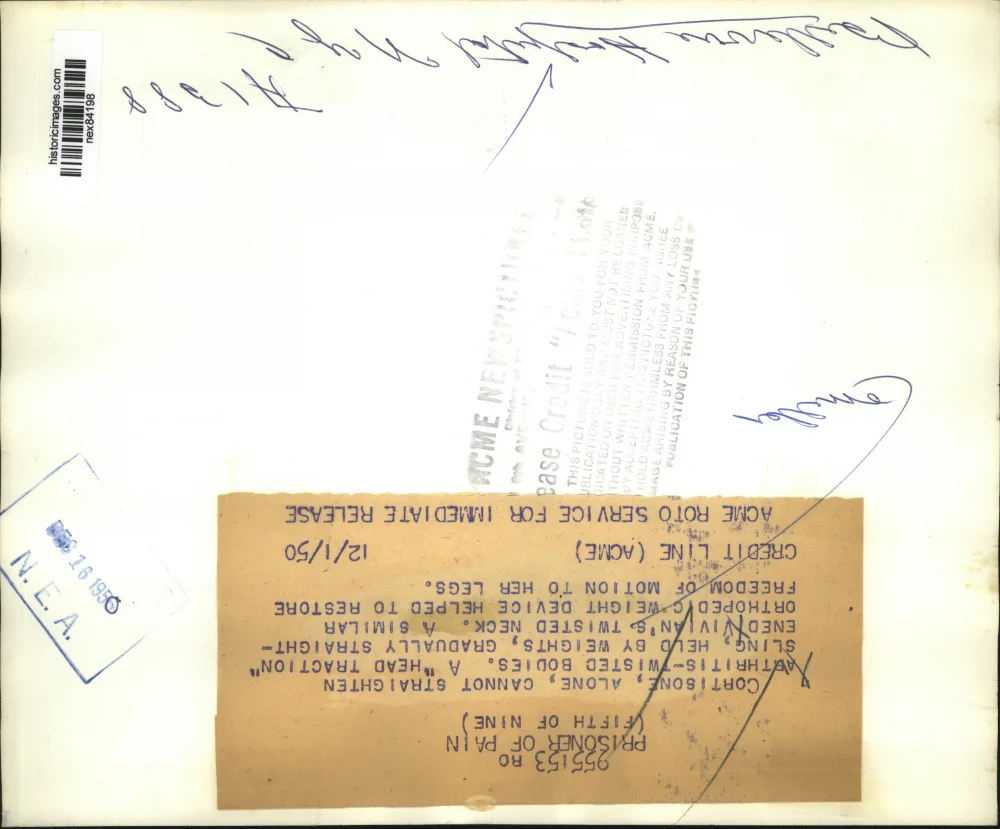 Bellevue Hospital N.Y.C
A1388
historicimages.com
nex84198
ACME NEWSPICTURES
ease Credit "Acme Photo"
THIS PICTURE IS SOLD TO YOU FOR YOUR
UBLICATION ONLY AND MUST NOT BE LOANED
DICATED OR USED FOR ADVERTISING PURPOSE
THOUT WRITTEN PERMISSION FROM ACME.
BY ACCEPTING THIS PICTURE YOU AGREE
HOLD ACME HARMLESS FROM ANY LOSS O
MAGE ARISING BY REASON OF YOUR USE
PUBLICATION OF THIS PICTURE
DEC 16 1950
N. E. A.
955153 RO
PRISONER OF PAIN
(FIFTH OF NINE)
CORTISONE, ALONE, CANNOT STRAIGHTEN
ARTHRITIS-TWISTED BODIES. A "HEAD TRACTION"
SLING, HELD BY WEIGHTS, GRADUALLY STRAIGHT-
ENED VIVIAN'S TWISTED NECK. A SIMILAR
ORTHOPEDIC WEIGHT DEVICE HELPED TO RESTORE
FREEDOM OF MOTION TO HER LEGS.
CREDIT LINE (ACME) 12/1/50
ACME ROTO SERVICE FOR IMMEDIATE RELEASE